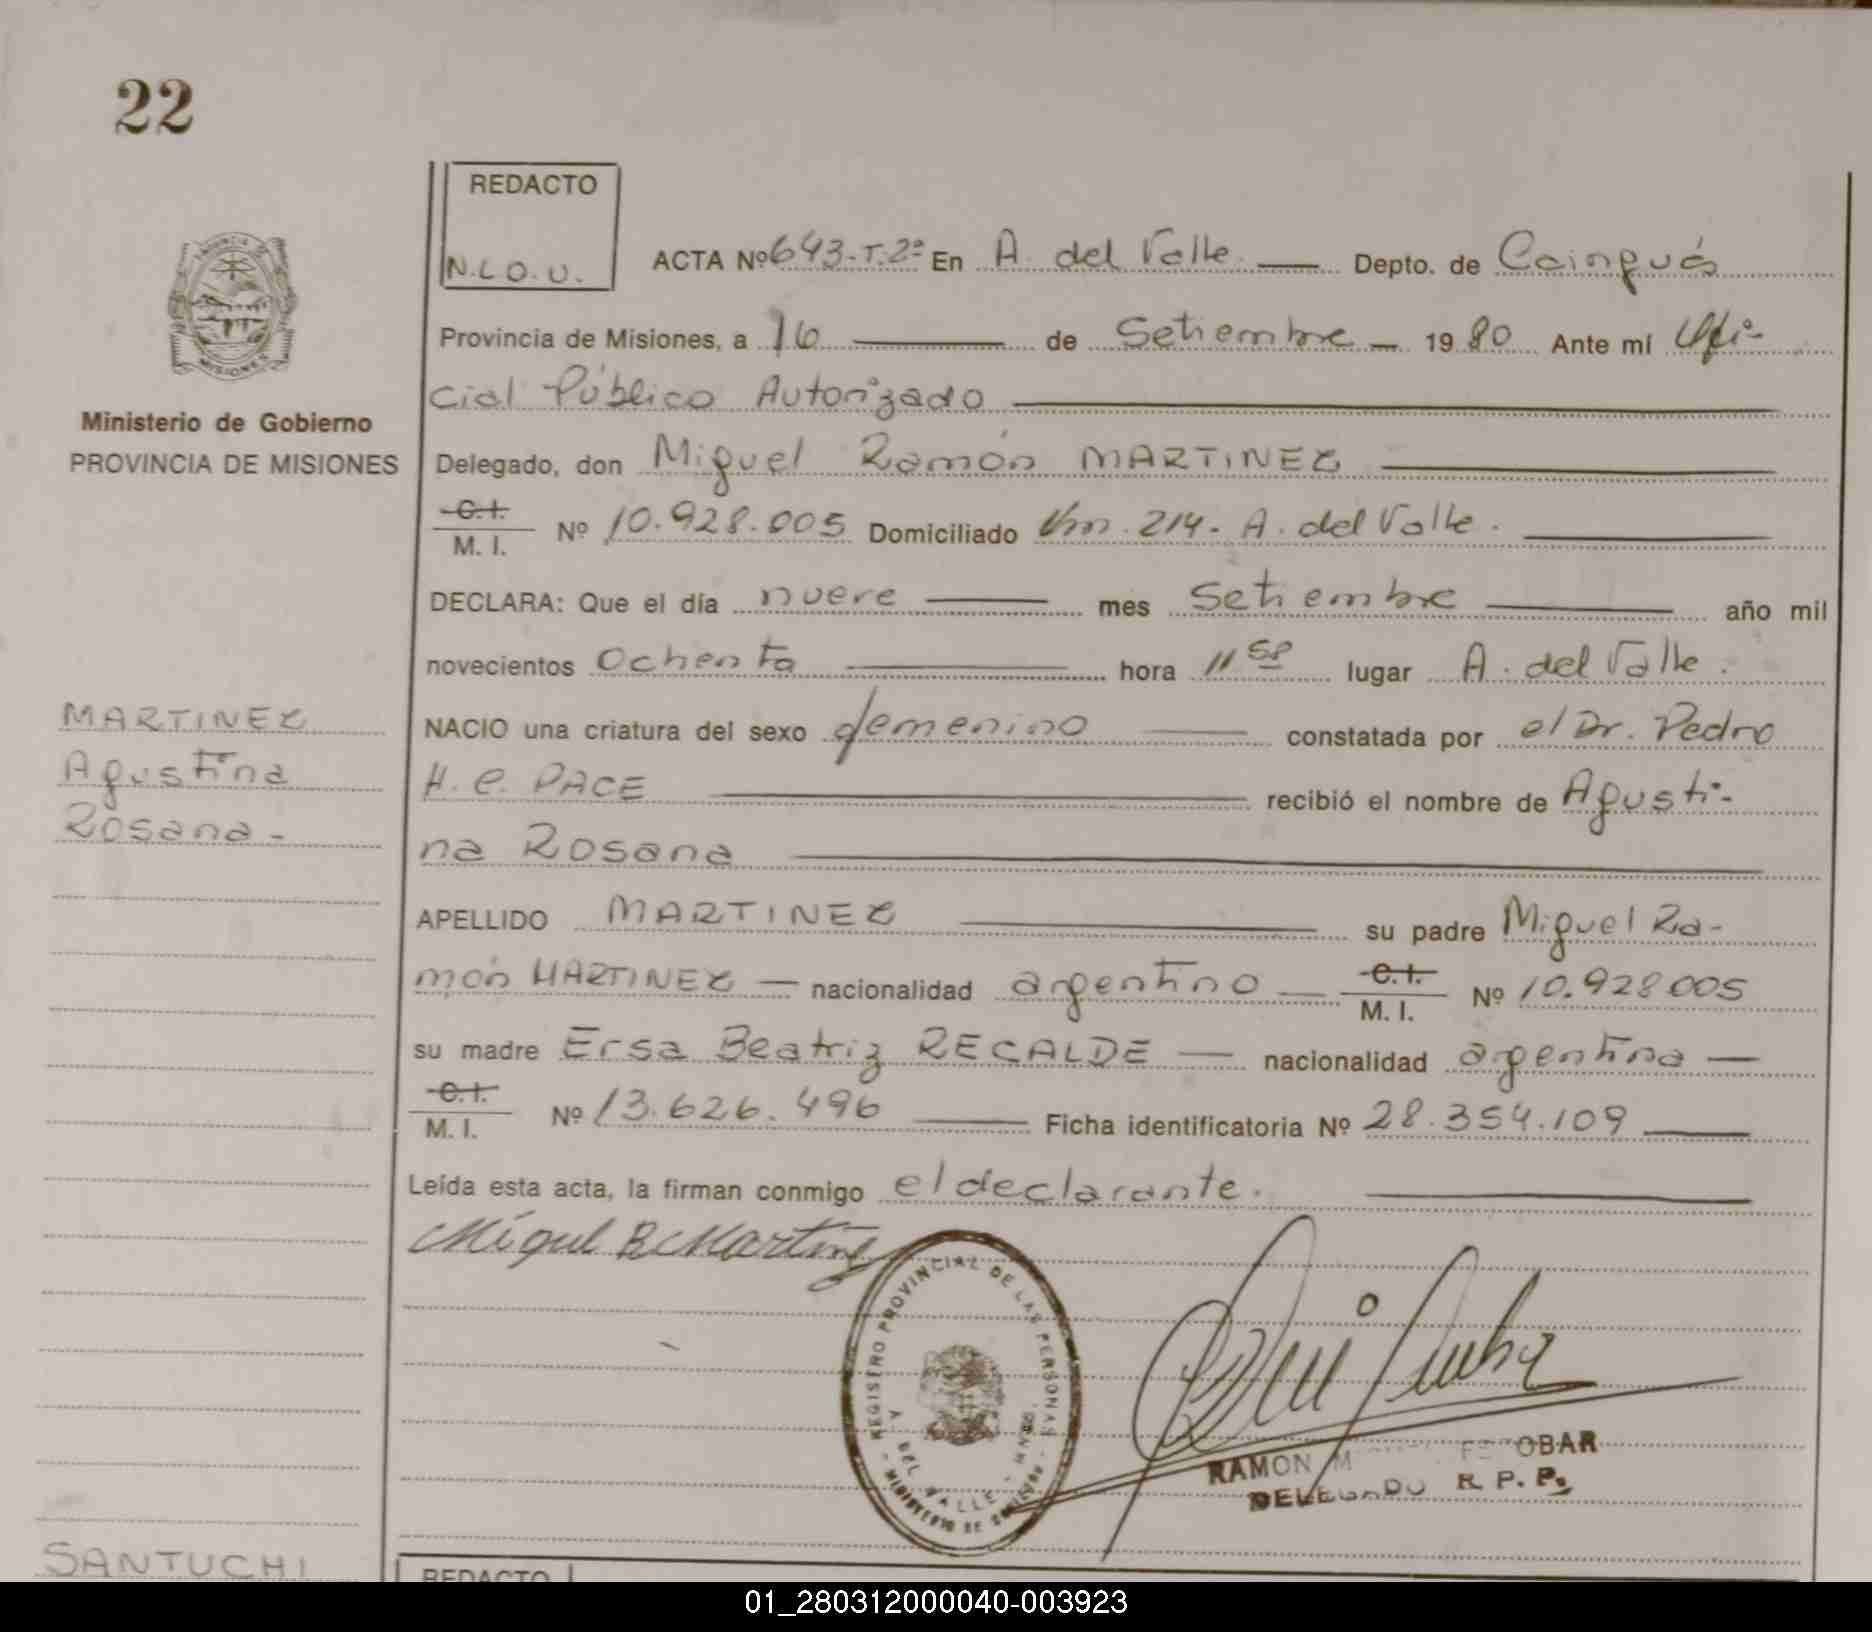 22
REDACTO
N.L.O.U.
ACTA Nº 643-T.2º En A. del Valle Depto. de Cainguás
Provincia de Misiones, a 16 de Setiembre 1980 Ante mí Ofi-
cial Público Autorizado
Ministerio de Gobierno
PROVINCIA DE MISIONES
Delegado, don Miguel Ramón MARTINEZ
C.I.
M. I. Nº 10.928.005 Domiciliado Km. 214- A. del Valle.
DECLARA: Que el día nueve mes Setiembre año mil
novecientos Ochenta hora 11 58 lugar A. del Valle.
MARTINEZ
Agustina
Rosana-
NACIO una criatura del sexo femenino constatada por el Dr. Pedro
H. C. PACE recibió el nombre de Agusti-
na Rosana
APELLIDO MARTINEZ su padre Miguel Ra-
món MARTINEZ nacionalidad argentino C.I.
M. I. Nº 10.928.005
su madre Ersa Beatriz RECALDE nacionalidad argentina
C.I.
M. I. Nº 13.626.496 Ficha identificatoria Nº 28.354.109
Leída esta acta, la firman conmigo el declarante.
Miguel R Martinez
REGISTRO PROVINCIAL DE LAS PERSONAS
A. DEL VALLE - MNES.
MINISTERIO DE GOBIERNO
RAMON OBAR
DELEGADO R. P. P.
SANTUCHI
REDACTO
01_280312000040-003923